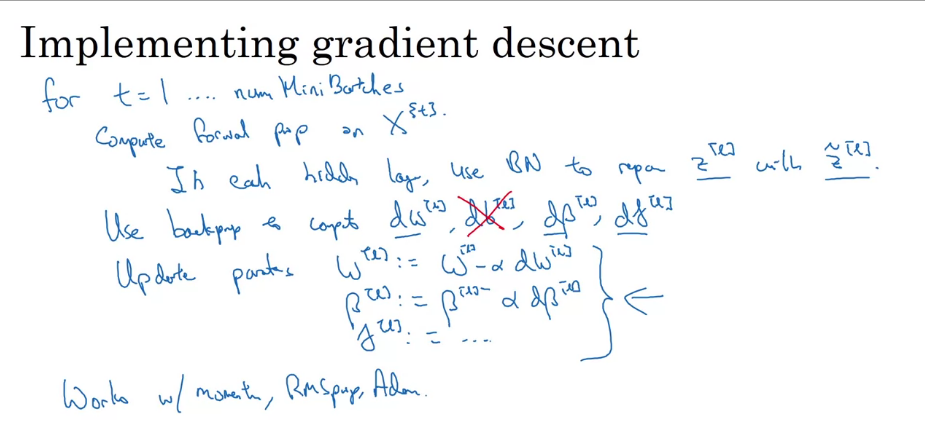 Implementing gradient descent
for t=1 .... num MiniBatches
Compute forward prop on X^{t}.
In each hidden layer, use BN to repar z^[l] with z̃^[l].
Use backprop to compute dw^[l], db^[l], dβ^[l], dγ^[l]
Update parameters W^[l] := W^[l] - α dw^[l]
β^[l] := β^[l] - α dβ^[l]
γ^[l] := ....
Works w/ momentum, RMSprop, Adam.